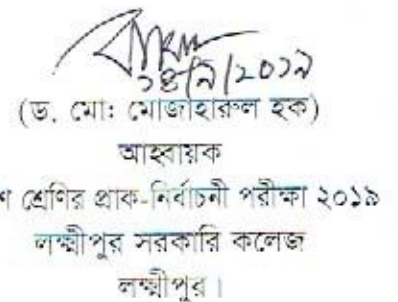 ১৪/৭/২০১৯
(ড. মোঃ মোজাহারুল হক)
আহবায়ক
শ শ্রেণির প্রাক-নির্বাচনী পরীক্ষা ২০১৯
লক্ষ্মীপুর সরকারি কলেজ
লক্ষ্মীপুর।